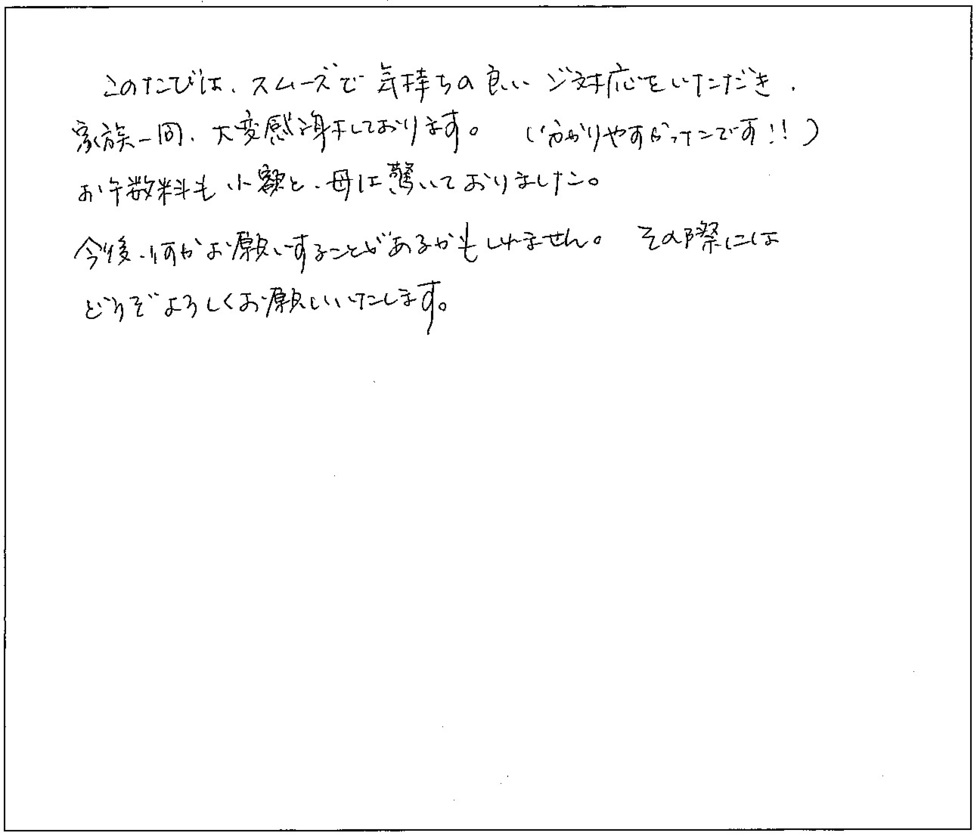 このたびは、スムーズで気持ちの良いご対応をいただき、
家族一同、大変感謝しております。 (分かりやすかったです!!)
お手数料も小額と、母は驚いておりました。
今後、何かお願いすることがあるかもしれません。 その際には
どうぞよろしくお願いいたします。